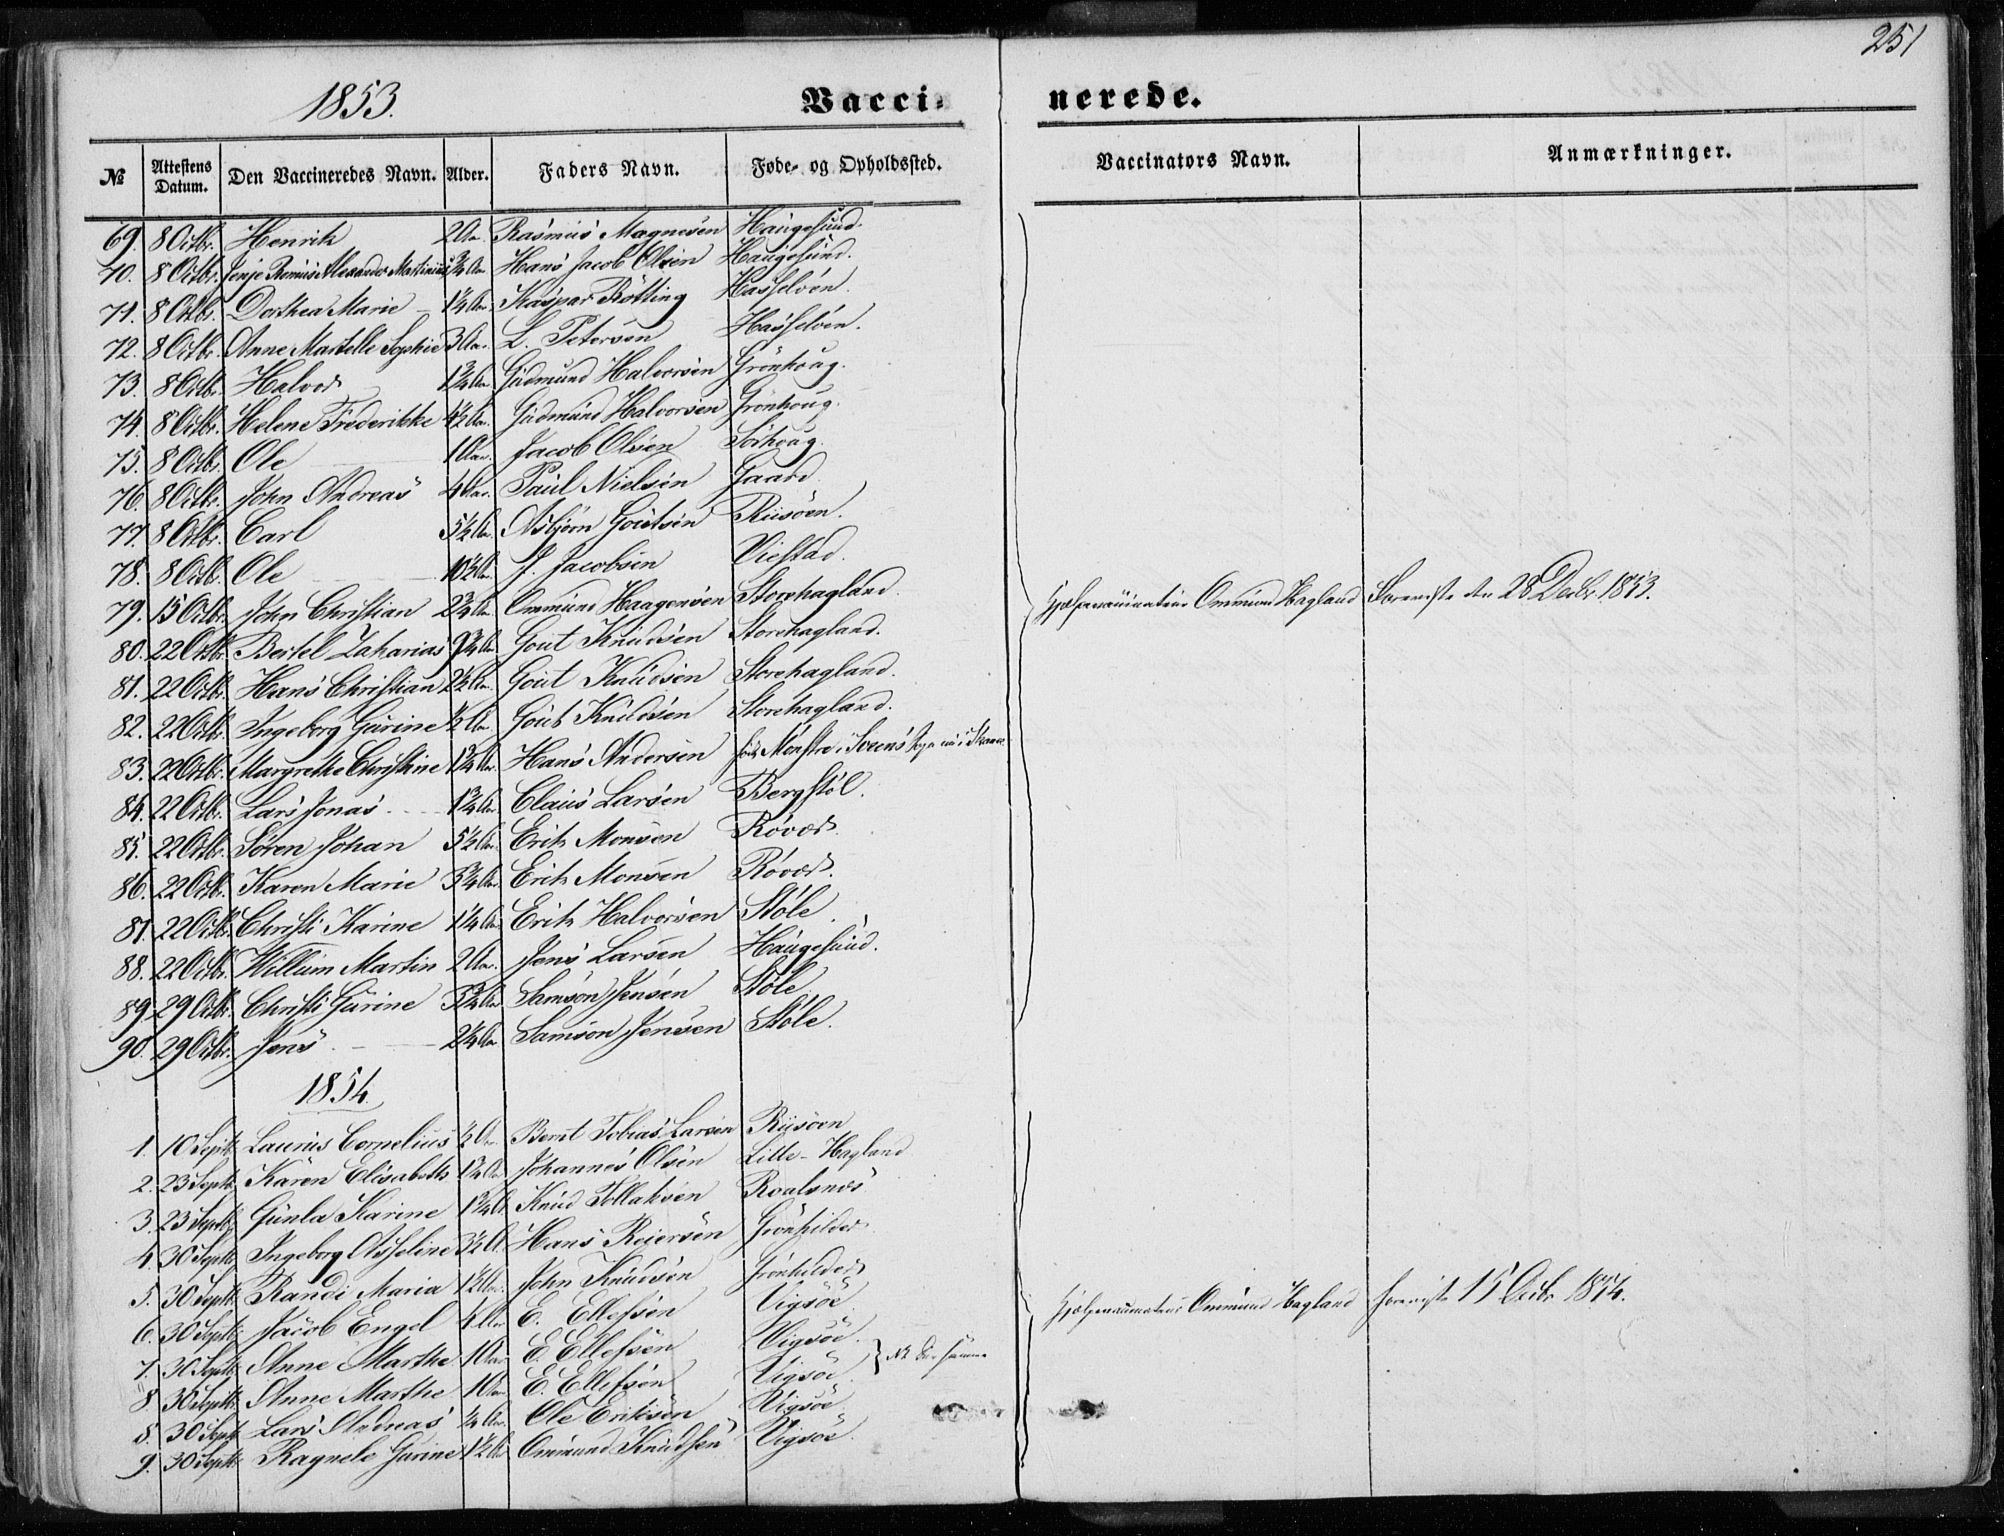 251
1853.
Vacci- nerede.
№ Attestens Datum. Den Vaccineredes Navn. Alder. Faders Navn. Føde- og Opholdssted. Vaccinators Navn. Anmærkninger.
69. 8 Octbr. Henrik 2 Aar. Rasmus Magnesen Haugesund.
70. 8 Octbr. Alexander Martinius ¾ Aar. Hans Jacob Olsen Haugesund.
71. 8 Octbr. Dorthea Marie 1¼ Aar. Kaspar Rötting Hasseløen.
72. 8 Octbr. Anne Martelle Sophie 3 Aar. L. Petersen Hasseløen.
73. 8 Octbr. Halvor 1¾ Aar. Gudmund Halvorsen Grönhoug.
74. 8 Octbr. Helene Frederikke 4½ Aar. Gudmund Halvorsen Grönhoug.
75. 8 Octbr. Ole 1 Aar. Jacob Olsen Sörhoug.
76. 8 Octbr. John Andreas 4 Aar. Paul Nielsen Gaard.
77. 8 Octbr. Carl 5½ Aar. Asbjörn Goutsen Riisøen.
78. 8 Octbr. Ole 10½ Aar. J. Jacobsen Viestad.
79. 15 Octbr. John Christian 2¾ Aar. Ommund Haagensen Storehagland. Hjælpevaccinateur Ommund Hagland Foreviste den 28 Decbr. 1853.
80. 22 Octbr. Bertel Zaharias 9¾ Aar. Gout Knudsen Storehagland.
81. 22 Octbr. Hans Christian 2½ Aar. Gout Knudsen Storehagland.
82. 22 Octbr. Ingeborg Gurine ½ Aar. Gout Knudsen Storehagland.
83. 22 Octbr. Margrethe Christine 1¾ Aar. Hans Andersen
84. 22 Octbr. Lars Jonas 1¾ Aar. Claus Larsen Bergstøl.
85. 22 Octbr. Søren Johan 5½ Aar. Erik Monsen Røvær.
86. 22 Octbr. Karen Marie 3¾ Aar. Erik Monsen Røvær.
87. 22 Octbr. Christi Karine 1¼ Aar. Erik Halvorsen Støle.
88. 22 Octbr. Willum Martin 2 Aar. Jens Larsen Haugesund.
89. 29 Octbr. Christi Gurine 3¾ Aar. Samson Jensen Støle
90. 29 Octbr. Jens 2¼ Aar. Samson Jensen Støle.
1854.
1. 10 Septbr. Laurus Cornelius ½ Aar Bernt Tobias Larsen Riisøen
2. 23 Septbr. Karen Elisabeth 1¾ Aar Johannes Olsen Lille-Hagland
3. 23 Septbr. Gunla Karine 1¾ A. Knud Tollaksen Roalsnæs
4. 30 Septbr. Ingeborg Asseline 3½ A. Hans Reiersen Grönhilder
5. 30 Septbr. Randi Maria 1½ Aar. John Knudsen Grönhilder
6. 30 Septbr. Jacob Engel 4 Aar E. Ellefsen Vigsøe. Hjælpevaccinateur Ommund Hagland foreviste 15 Decbr. 1854.
7. 30 Septbr. Anne Marthe 10 Aar E. Ellefsen Vigsøe.
8 30 Septbr. Anne Marthe 10 Aar E. Ellefsen Vigsøe
8. 30 Septbr. Lars Andreas ¼ Aar. Ole Eriksen Vigsøe
9. 30 Septbr. Ragnele Gurine 1½ A. Ommund Knudsen Vigsøe.